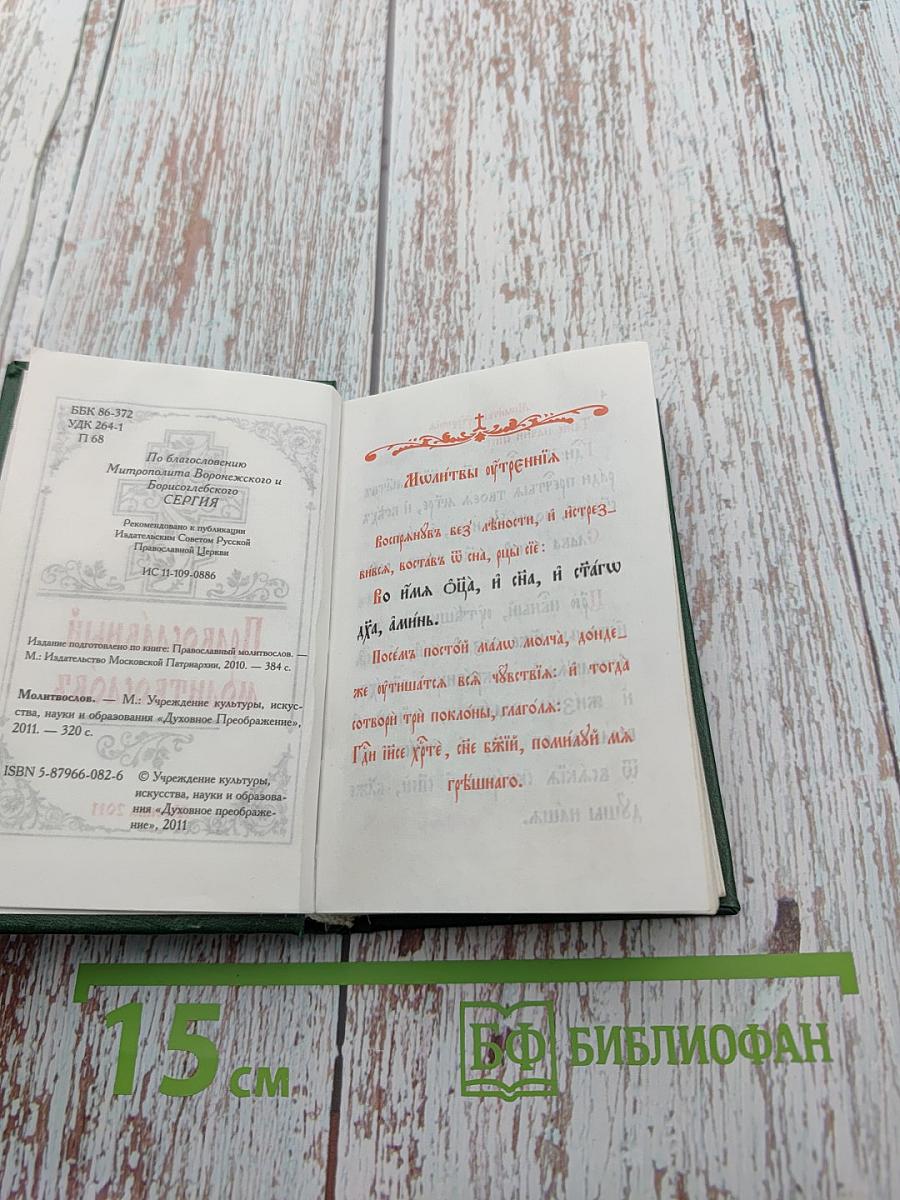 ББК 86-372
УДК 264-1
П 68
По благословению
Митрополита Воронежского и
Борисоглебского
СЕРГИЯ
Рекомендовано к публикации
Издательским Советом Русской
Православной Церкви
ИС 11-109-0886
Издание подготовлено по книге: Православный молитвослов. —
М.: Издательство Московской Патриархии, 2010. — 384 с.
Молитвослов. — М.: Учреждение культуры, искус-
ства, науки и образования «Духовное Преображение»,
2011. — 320 с.
ISBN 5-87966-082-6
© Учреждение культуры,
искусства, науки и образова-
ния «Духовное преображе-
ние», 2011
Мѡли́твы ᲂу҆́трєннїѧ
Воспрѧ́нꙋвъ без̾ лѣ́ности, и҆ и҆стрез_
ви́всѧ, воста́въ ѿ сна̀, рцы̀ сїѐ:
Во и҆́мѧ ѻ҆ц҃а̀, и҆ сн҃а, и҆ ст҃а́гѡ
дх҃а, а҆ми́нь.
Посе́мъ посто́й ма́лѡ мо́лча, до́нде_
же ᲂу҆тиша́тсѧ всѧ̑ чꙋ̑вствїѧ: и҆ тогда̀
сотворѝ трѝ покло́ны, глаго́лѧ:
Гдⷭ҇и і҆и҃се хрⷭ҇тѐ, сн҃е бж҃їй, поми́лꙋй мѧ̀
грѣ́шнаго.
15 см
БФ БИБЛИОФАН